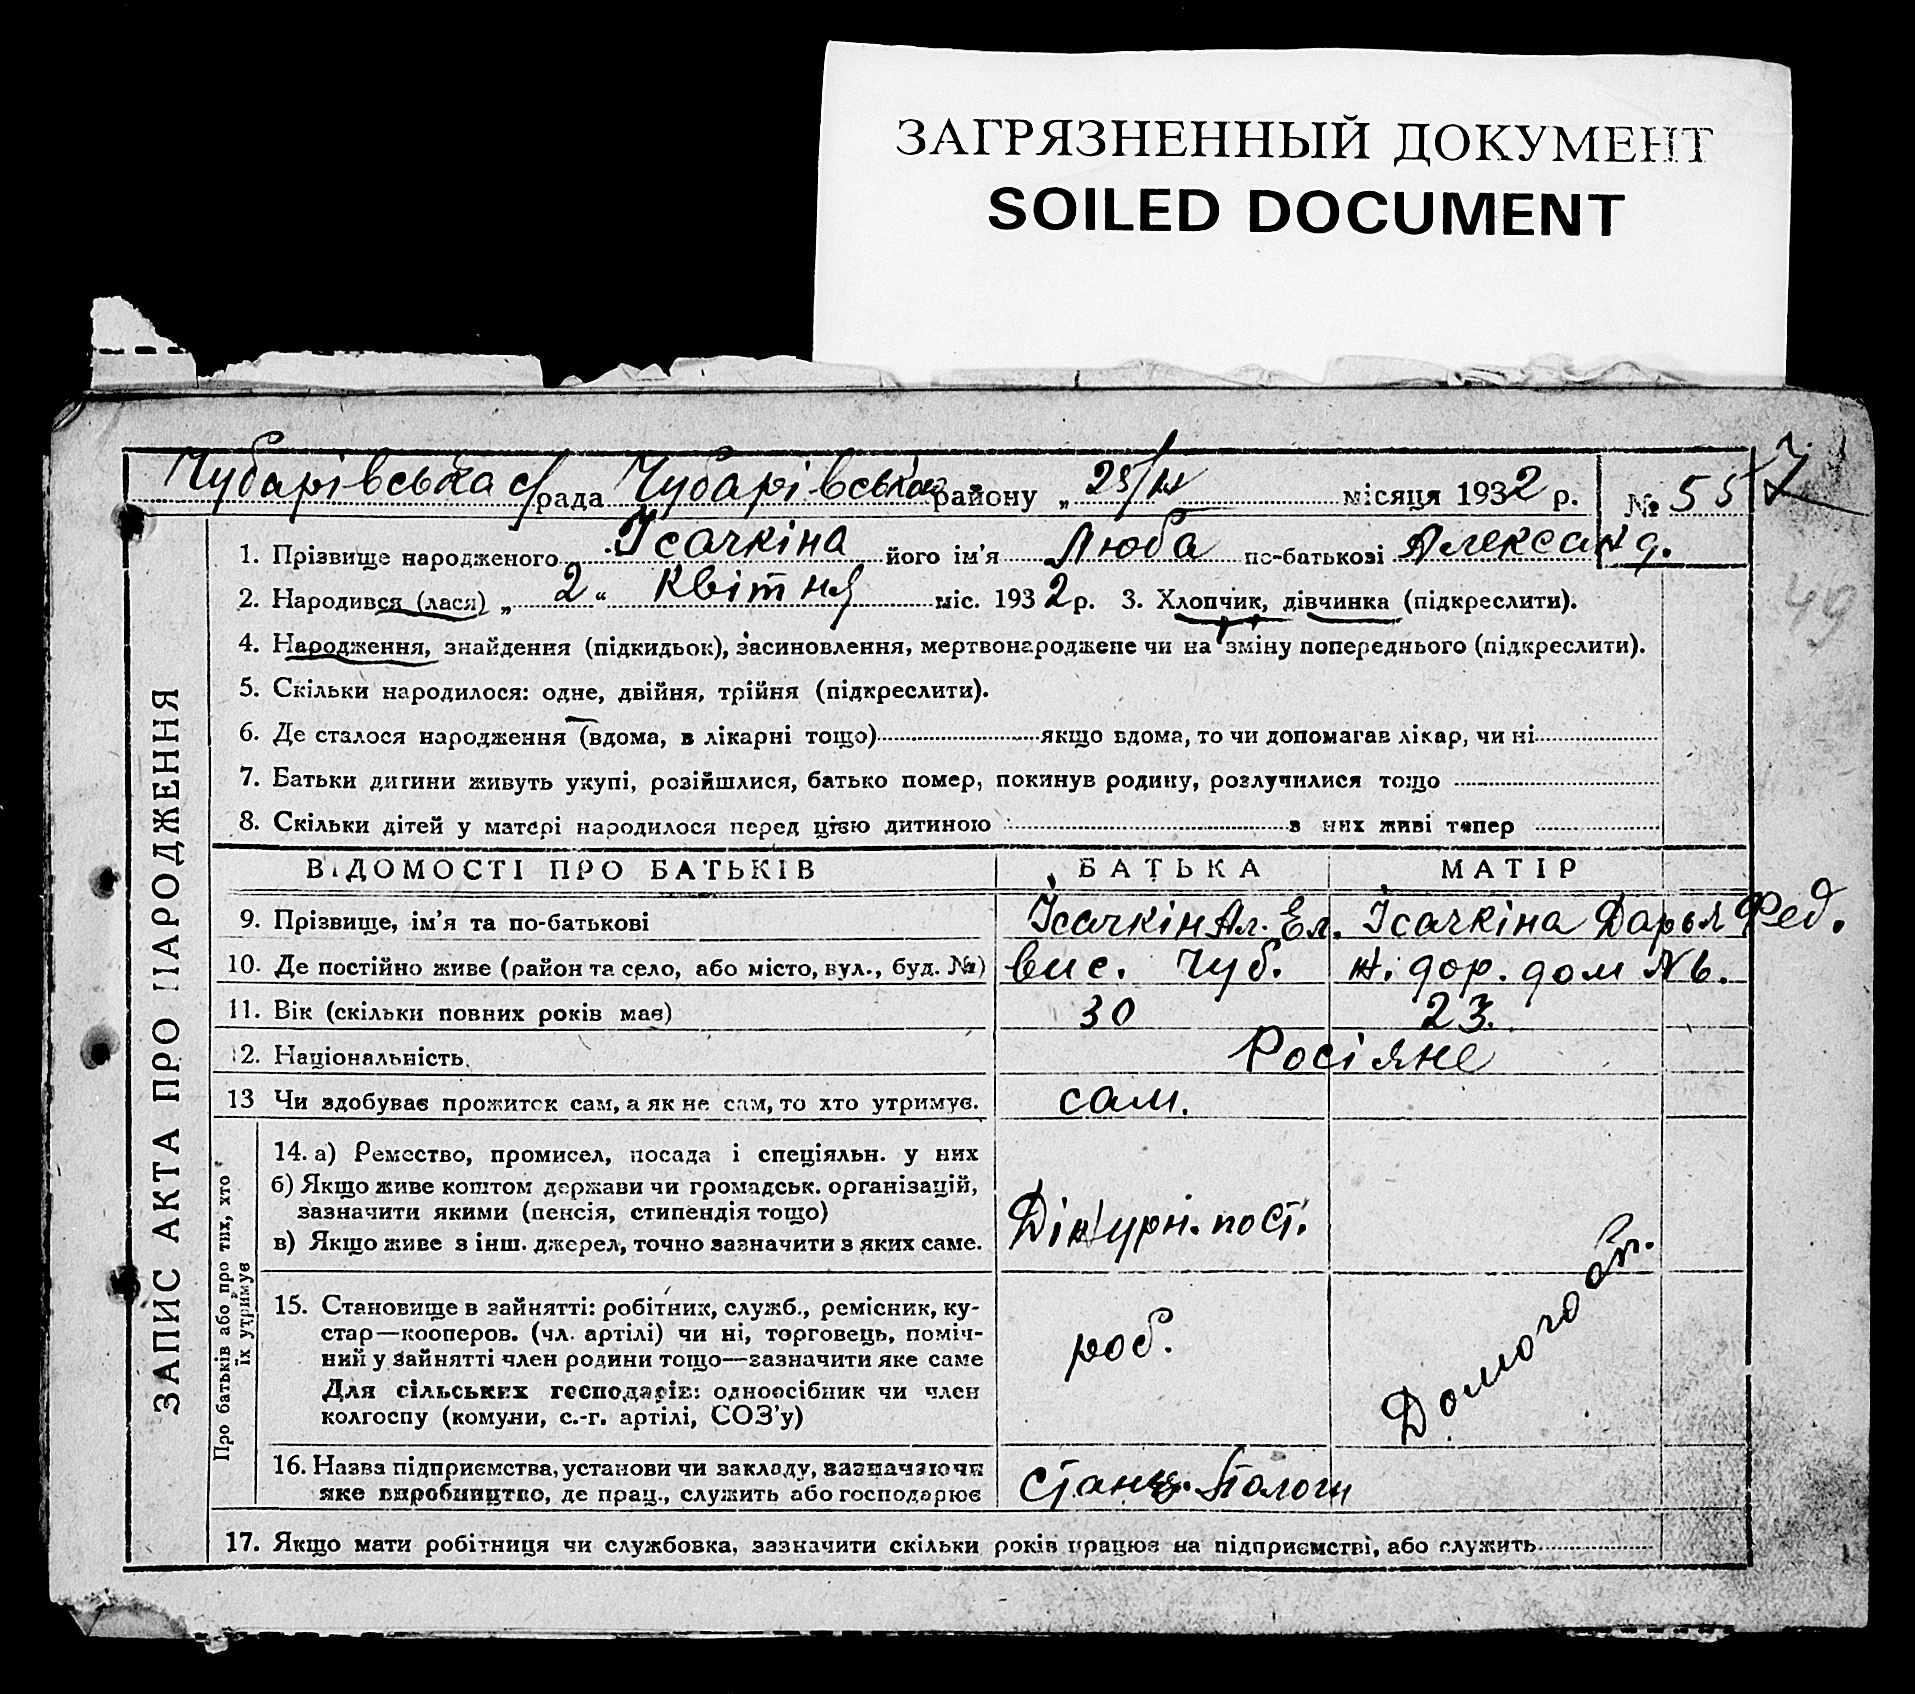 ЗАГРЯЗНЕННЫЙ ДОКУМЕНТ
SOILED DOCUMENT
Чубарівська с/рада Чубарівськ району „ 23/IV місяця 1932 р. № 55
49
ЗАПИС АКТА ПРО НАРОДЖЕННЯ
1. Прізвище народженого Ісачкіна його ім'я Люба по-батькові Александ.
2. Народився (лася) „ 2 “ Квітня міс. 1932 р. 3. Хлопчик, дівчинка (підкреслити).
4. Народження, знайдення (підкидьок), засиновлення, мертвонароджене чи на зміну попереднього (підкреслити).
5. Скільки народилося: одне, двійня, трійня (підкреслити).
6. Де сталося народження (вдома, в лікарні тощо) якщо вдома, то чи допомагав лікар, чи ні
7. Батьки дитини живуть укупі, розійшлися, батько помер, покинув родину, розлучилися тощо
8. Скільки дітей у матері народилося перед цією дитиною з них живі тепер
ВІДОМОСТІ ПРО БАТЬКІВ БАТЬКА МАТІР
9. Прізвище, ім'я та по-батькові Ісачкін Ал. Ел. Ісачкіна Дарья Фед.
10. Де постійно живе (район та село, або місто, вул., буд. №) вис. Чуб. ж. дор. дом №6.
11. Вік (скільки повних років має) 30 23.
12. Національність Росіяне
13 Чи здобуває прожиток сам, а як не сам, то хто утримує. сам.
Про батьків або про тих, хто
їх утримує
14. а) Ремество, промисел, посада і спеціяльн. у них
б) Якщо живе коштом держави чи громадськ. організацій,
зазначити якими (пенсія, стипендія тощо)
в) Якщо живе з інш. джерел, точно зазначити з яких саме.
Діжурн. пост.
15. Становище в зайнятті: робітник, служб., ремісник, ку-
стар—кооперов. (чл. артілі) чи ні, торговець, поміч-
ний у зайнятті член родини тощо—зазначити яке саме
Для сільських господарів: одноосібник чи член
колгоспу (комуни, с.-г. артілі, СОЗ'у)
роб.
16. Назва підприємства, установи чи закладу, зазначаючи
яке виробництво, де прац., служить або господарює
Станц. Пологи
17. Якщо мати робітниця чи службовка, зазначити скільки років працює на підприємстві, або служить